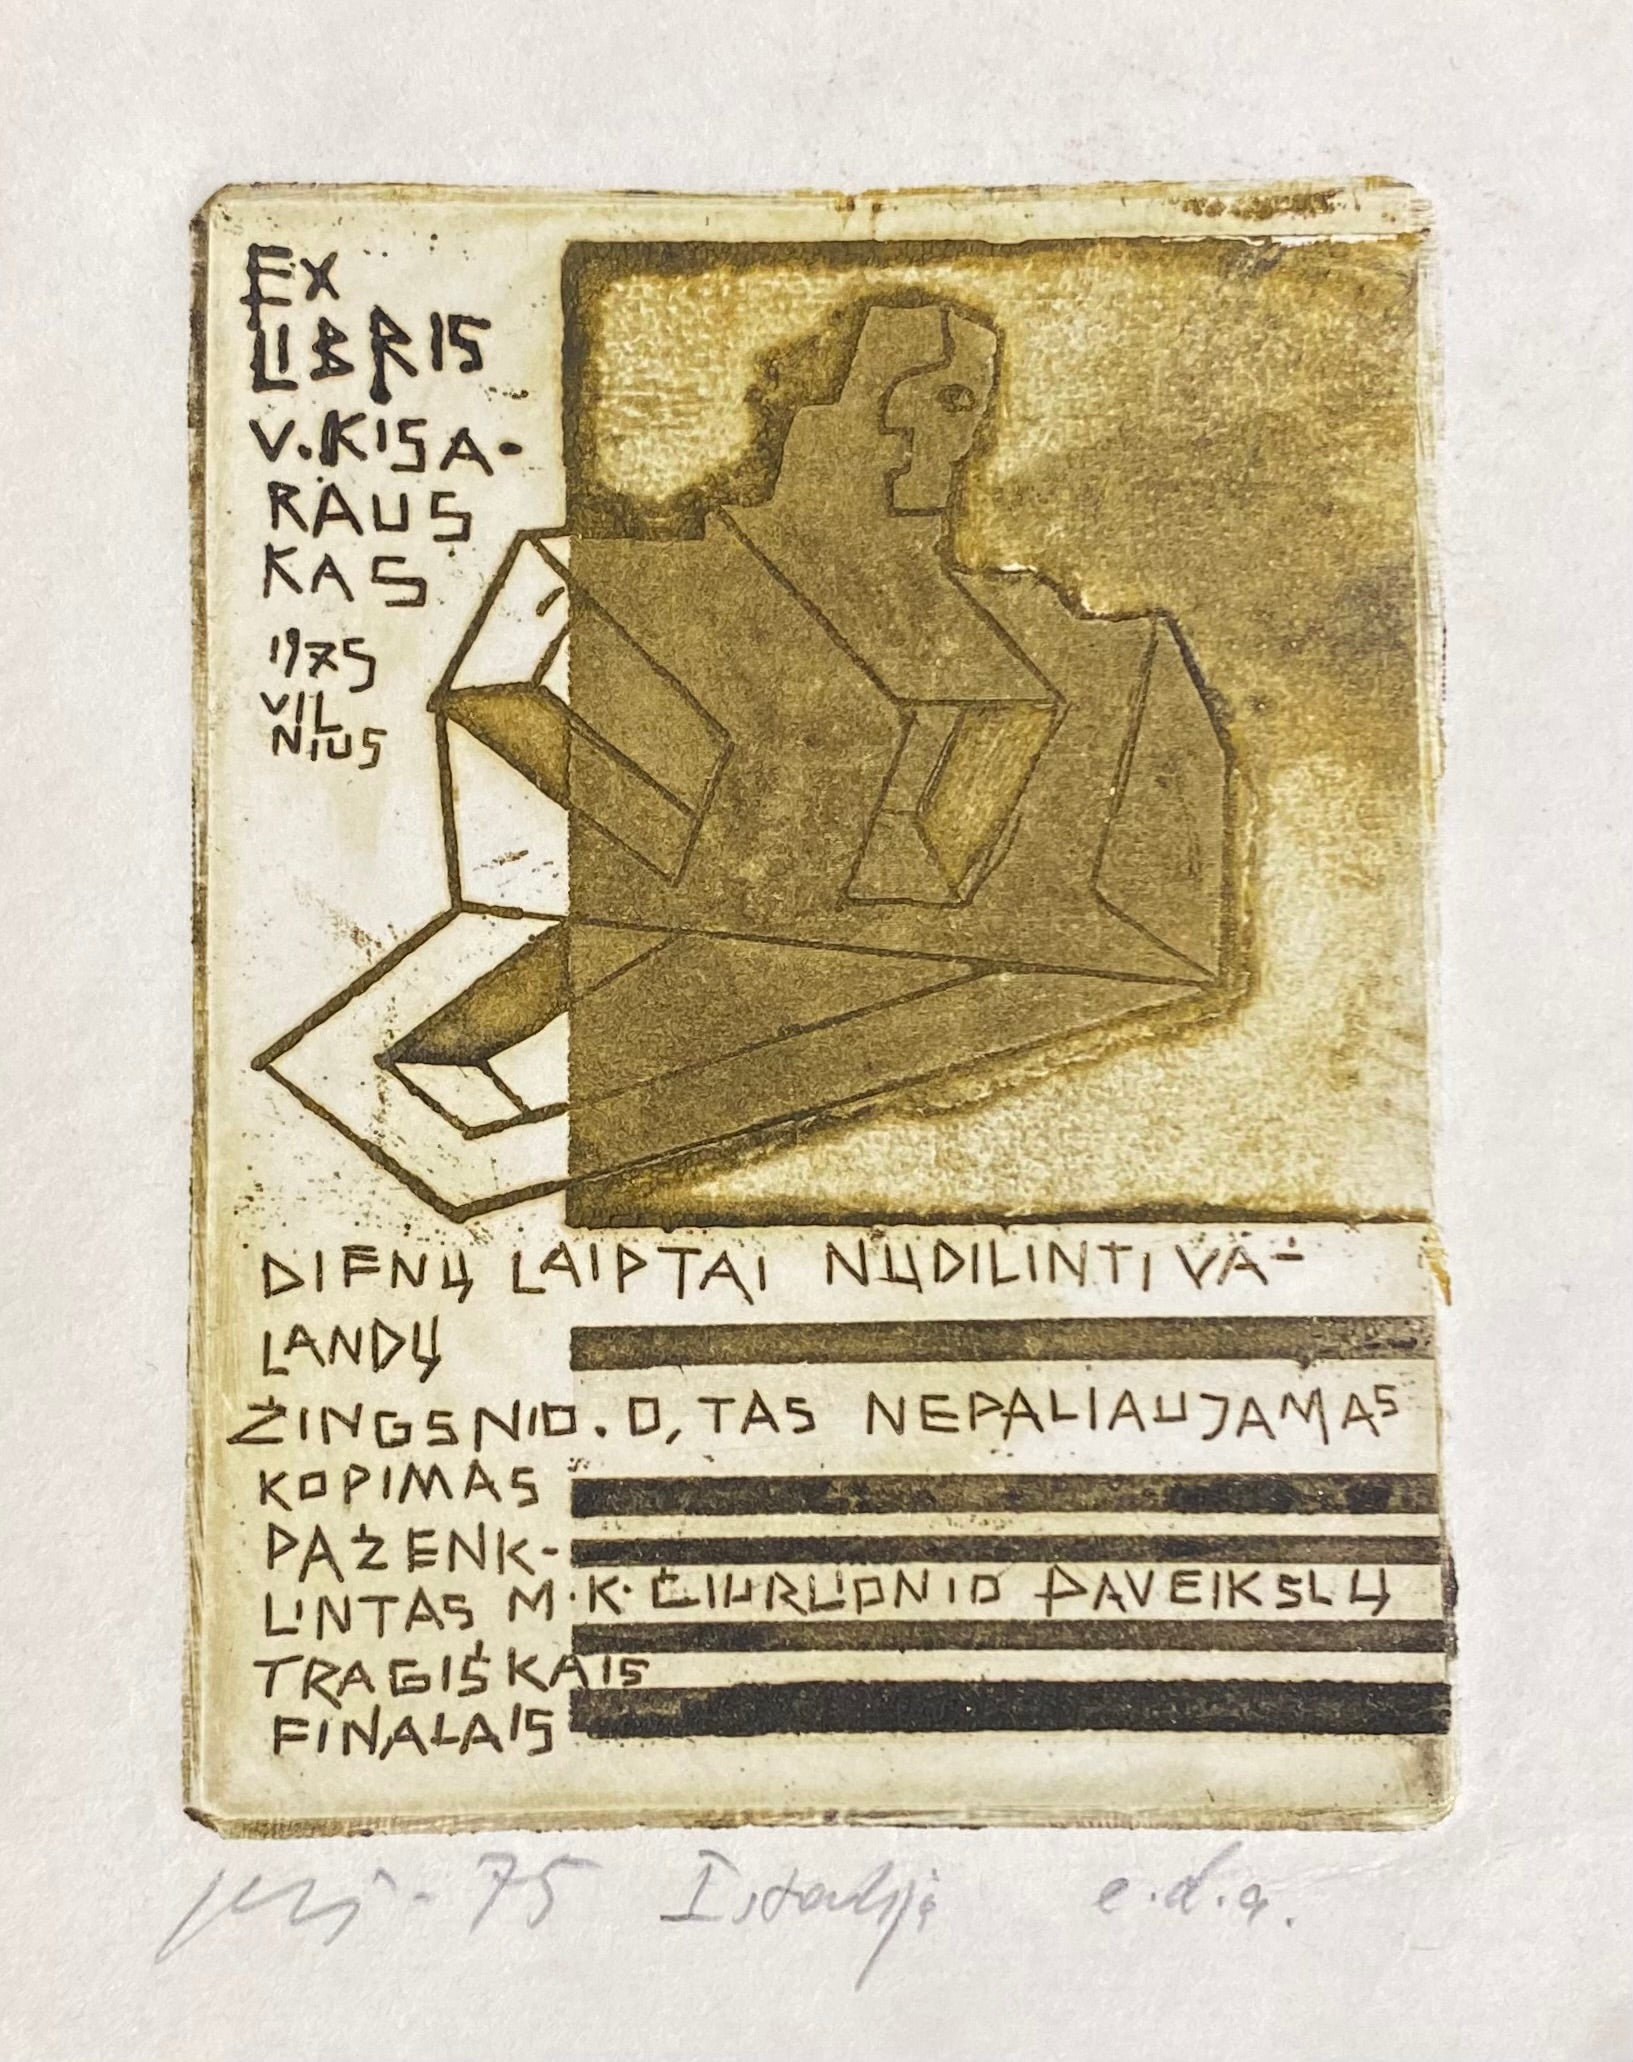 EX
LIBRIS
V. KISA-
RAUS
KAS
1975
VIL
NIUS
DIENŲ LAIPTAI NŲDILINTI VA-
LANDŲ
ŽINGSNIO. O, TAS NEPALIAUJAMAS
KOPIMAS
PAŽENK-
LINTAS M.K. ČIURLIONIO PAVEIKSLŲ
TRAGIŠKAIS
FINALAIS
-75 e.d.a.